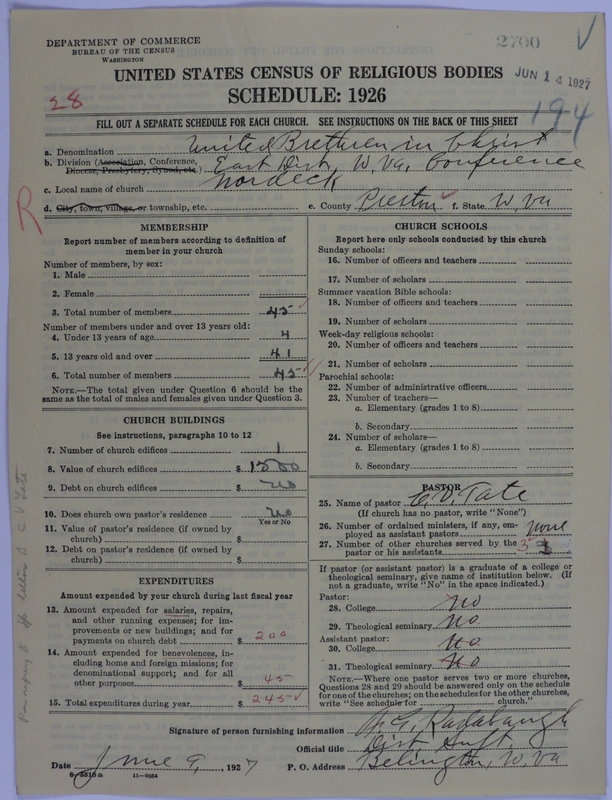 DEPARTMENT OF COMMERCE
BUREAU OF THE CENSUS
WASHINGTON
2700
UNITED STATES CENSUS OF RELIGIOUS BODIES
JUN 14 1927
28
SCHEDULE: 1926
194
FILL OUT A SEPARATE SCHEDULE FOR EACH CHURCH. SEE INSTRUCTIONS ON THE BACK OF THIS SHEET
a. Denomination United Brethren in Christ
b. Division (Association, Conference, Diocese, Presbytery, Synod, etc.) East Dist, W. Va. Conference
c. Local name of church Nordeck
d. City, town, village, or township, etc. e. County Preston f. State W. Va
R
MEMBERSHIP
Report number of members according to definition of
member in your church
Number of members, by sex:
1. Male
2. Female
3. Total number of members 45
Number of members under and over 13 years old:
4. Under 13 years of age 4
5. 13 years old and over 41
6. Total number of members 45
NOTE.—The total given under Question 6 should be the
same as the total of males and females given under Question 3.
CHURCH BUILDINGS
See instructions, paragraphs 10 to 12
7. Number of church edifices 1
8. Value of church edifices $ 1500
9. Debt on church edifices $ no
10. Does church own pastor's residence no
Yes or No
11. Value of pastor's residence (if owned by
church) $
12. Debt on pastor's residence (if owned by
church) $
EXPENDITURES
Amount expended by your church during last fiscal year
13. Amount expended for salaries, repairs,
and other running expenses; for im-
provements or new buildings; and for
payments on church debt $ 200
14. Amount expended for benevolences, in-
cluding home and foreign missions; for
denominational support; and for all
other purposes $ 45
15. Total expenditures during year $ 245
CHURCH SCHOOLS
Report here only schools conducted by this church
Sunday schools:
16. Number of officers and teachers
17. Number of scholars
Summer vacation Bible schools:
18. Number of officers and teachers
19. Number of scholars
Week-day religious schools:
20. Number of officers and teachers
21. Number of scholars
Parochial schools:
22. Number of administrative officers
23. Number of teachers—
a. Elementary (grades 1 to 8)
b. Secondary
24. Number of scholars—
a. Elementary (grades 1 to 8)
b. Secondary
PASTOR
25. Name of pastor C. V. Tate
(If church has no pastor, write "None")
26. Number of ordained ministers, if any, em-
ployed as assistant pastors none
27. Number of other churches served by the
pastor or his assistants 3
If pastor (or assistant pastor) is a graduate of a college or
theological seminary, give name of institution below. (If
not a graduate, write "No" in the space indicated.)
Pastor:
28. College no
29. Theological seminary no
Assistant pastor:
30. College no
31. Theological seminary no
NOTE.—Where one pastor serves two or more churches,
Questions 28 and 29 should be answered only on the schedule
for one of the churches; on the schedules for the other churches,
write "See schedule for church."
Signature of person furnishing information Radabaugh
Official title Dist. Supt
Date June 9, 1927 P. O. Address Belington, W. Va
8-5518a 11-9084